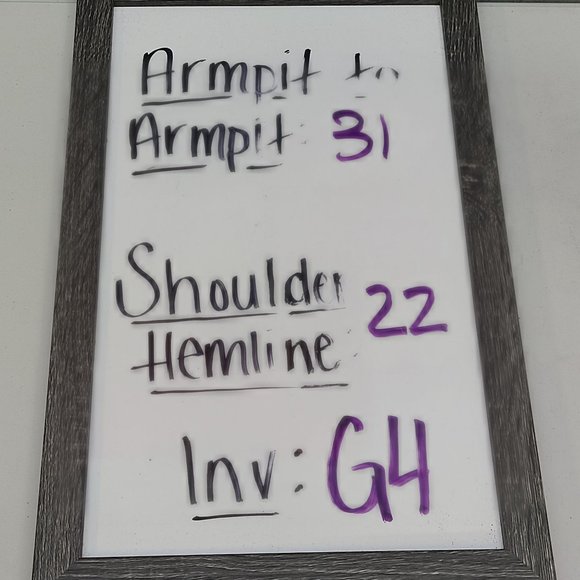 Armpit to
Armpit: 31
Shoulder
Hemline: 22
Inv: G4